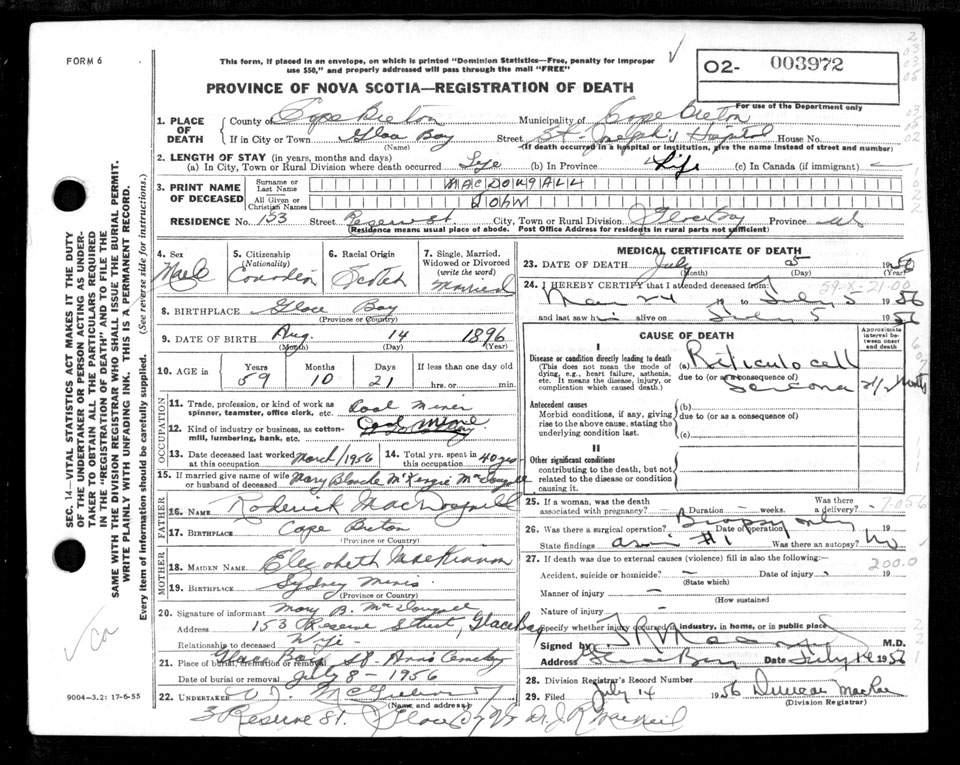 FORM 6
This form, if placed in an envelope, on which is printed "Dominion Statistics—Free, penalty for improper
use $50," and properly addressed will pass through the mail "FREE"
02- 003972
For use of the Department only
PROVINCE OF NOVA SCOTIA—REGISTRATION OF DEATH
1. PLACE OF DEATH
County of Cape Breton Municipality of Cape Breton
If in City or Town Glace Bay Street St. Joseph's Hospital House No.
(Name) (If death occurred in a hospital or institution, give the name instead of street and number)
2. LENGTH OF STAY (in years, months and days)
(a) In City, Town or Rural Division where death occurred Life (b) In Province Life (c) In Canada (if immigrant) —
3. PRINT NAME OF DECEASED
Surname or Last Name MACDOUGALL
All Given or Christian Names JOHN
RESIDENCE No. 153 Street Reserve St City, Town or Rural Division Glace Bay Province NS
(Residence means usual place of abode. Post Office Address for residents in rural parts not sufficient)
4. Sex Male
5. Citizenship (Nationality) Canadian
6. Racial Origin Scotch
7. Single, Married, Widowed or Divorced (write the word) Married
8. BIRTHPLACE Glace Bay
(Province or Country)
9. DATE OF BIRTH Aug. 14 1896
(Month) (Day) (Year)
10. AGE in Years 59 Months 10 Days 21 If less than one day old hrs. or min.
OCCUPATION
11. Trade, profession, or kind of work as spinner, teamster, office clerk, etc. Coal Miner
12. Kind of industry or business, as cotton-mill, lumbering, bank, etc. Coal Mine
13. Date deceased last worked at this occupation March/1956
14. Total yrs. spent in this occupation 40 yrs.
15. If married give name of wife or husband of deceased Mary Blanche McKenzie McDougall
FATHER
16. NAME Roderick MacDougall
17. BIRTHPLACE Cape Breton
(Province or Country)
MOTHER
18. MAIDEN NAME Elizabeth MacKinnon
19. BIRTHPLACE Sydney Mines
(Province or Country)
20. Signature of informant Mary B. McDougall
Address 153 Reserve Street, Glace Bay
Relationship to deceased Wife
21. Place of burial, cremation or removal Glace Bay St. Ann's Cemetery
Date of burial or removal July 8 - 1956
22. UNDERTAKER
(Name and address)
3 Reserve St. Glace Bay NS Dr. J. R. MacNeil
MEDICAL CERTIFICATE OF DEATH
23. DATE OF DEATH July 5 1956
(Month) (Day) (Year)
24. I HEREBY CERTIFY that I attended deceased from:
59-X-21.00
Mar 24 19 to July 5 1956
and last saw him alive on July 5 1956
CAUSE OF DEATH
Approximate interval between onset and death
I
Disease or condition directly leading to death
(This does not mean the mode of dying, e.g., heart failure, asthenia, etc. It means the disease, injury, or complication which caused death.)
(a) Reticulo cell
due to (or as a consequence of)
Sarcoma 2 1/2 Months
Antecedent causes
Morbid conditions, if any, giving rise to the above cause, stating the underlying condition last.
(b)
due to (or as a consequence of)
(c)
II
Other significant conditions
contributing to the death, but not related to the disease or condition causing it.
25. If a woman, was the death associated with pregnancy? — Duration — weeks. Was there a delivery? -
7-056
26. Was there a surgical operation? Biopsy only Date of operation 19
State findings as in #1 Was there an autopsy? No
27. If death was due to external causes (violence) fill in also the following:-
200.0
Accident, suicide or homicide? — Date of injury - 19
(State which)
Manner of injury —
(How sustained
Nature of injury —
Specify whether injury occurred in industry, in home, or in public place
Signed by M.D.
Address Glace Bay Date July 14 1956
28. Division Registrar's Record Number
29. Filed July 14 1956 Duncan MacRae
(Division Registrar)
SEC. 14—VITAL STATISTICS ACT MAKES IT THE DUTY
OF THE UNDERTAKER OR PERSON ACTING AS UNDER-
TAKER TO OBTAIN ALL THE PARTICULARS REQUIRED
IN THE "REGISTRATION OF DEATH" AND TO FILE THE
SAME WITH THE DIVISION REGISTRAR WHO SHALL ISSUE THE BURIAL PERMIT.
WRITE PLAINLY WITH UNFADING INK. THIS IS A PERMANENT RECORD.
Every item of information should be carefully supplied. (See reverse side for instructions.)
ca
9004—3.2: 17-6-55